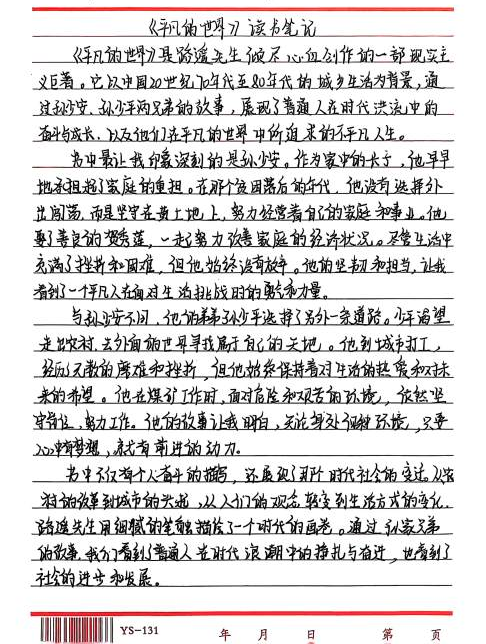 《平凡的世界》读书笔记
《平凡的世界》是路遥先生倾尽心血创作的一部现实主
义巨著。它以中国20世纪70年代至80年代的城乡生活为背景,通
过孙少安、孙少平两兄弟的故事,展现了普通人在时代洪流中的
奋斗与成长,以及他们在平凡的世界中所追求的不平凡人生。
书中最让我印象深刻的是孙少安。作为家中的长子,他早早
地承担起了家庭的重担。在那个贫困落后的年代,他没有选择外
出闯荡,而是坚守在黄土地上,努力经营着自己的家庭和事业。他
娶了善良的贺秀莲,一起努力改善家庭的经济状况。尽管生活中
充满了挫折和困难,但他始终没有放弃。他的坚韧和担当,让我
看到了一个平凡人在面对生活挑战时的勇气和力量。
与孙少安不同,他的弟弟孙少平选择了另外一条道路。少平渴望
走出农村,去外面的世界寻找属于自己的天地。他到城市打工,
经历无数的磨难和挫折,但他始终保持着对生活的热爱和对未
来的希望。他在煤矿工作时,面对危险和艰苦的环境,依然坚
守岗位、努力工作。他的故事让我明白,无论身处何种环境,只要
心中有梦想,就有前进的动力。
书中不仅有个人奋斗的描写,还展现了那个时代社会的变迁。从农
村的改革到城市的发展,从人们的观念转变到生活方式的变化,
路遥先生用细腻的笔触描绘了一个时代的画卷。通过孙家兄弟
的故事,我们看到了普通人在时代浪潮中的挣扎与奋进,也看到了
社会的进步和发展。
YS-131 年 月 日 第 页